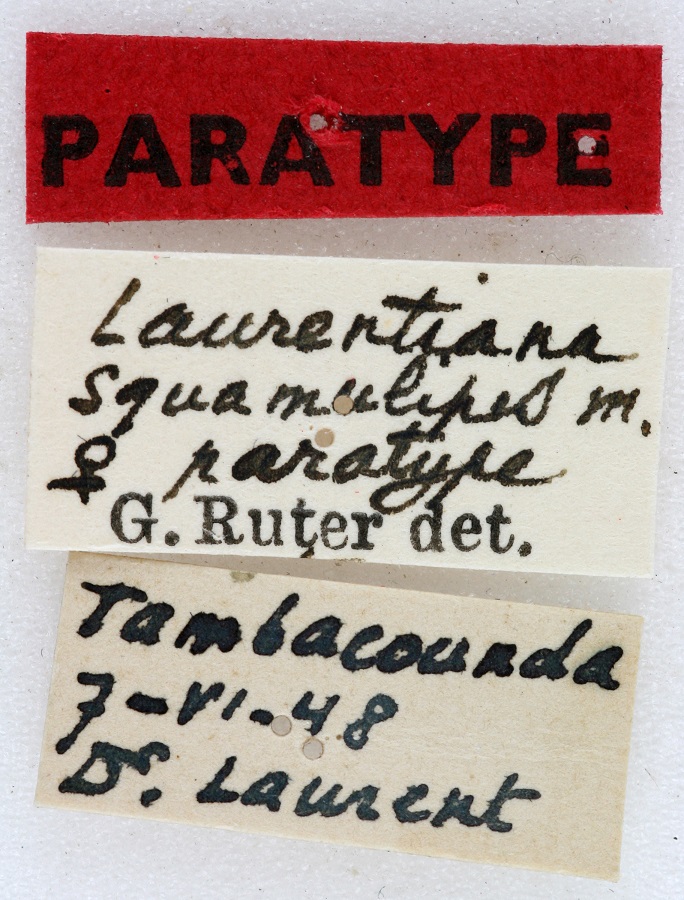 PARATYPE
Laurentiana
squamulipes m.
♀ paratype
G. Ruter det.
Tambacounda
7-VI-48
Dr. Laurent